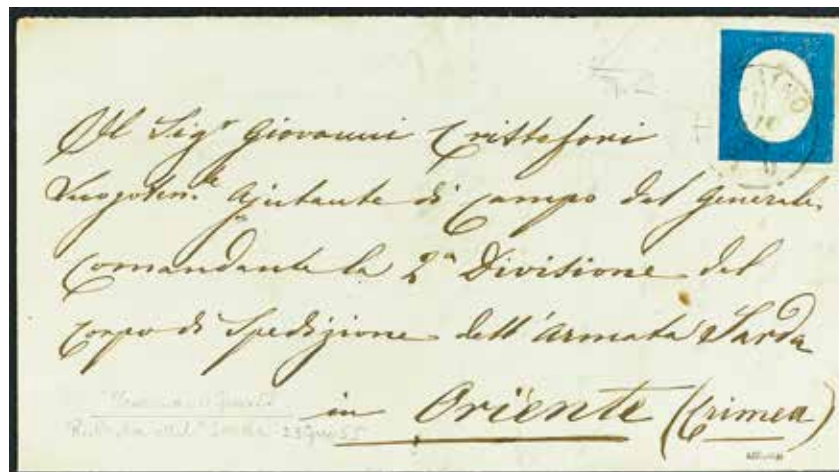 Al Sig.r Giovanni Crittofori
Luogoten.te Ajutante di Campo del Generale
Comandante la 2a Divisione del
Corpo di Spedizione dell'Armata Sarda
in Oriente (Crimea)